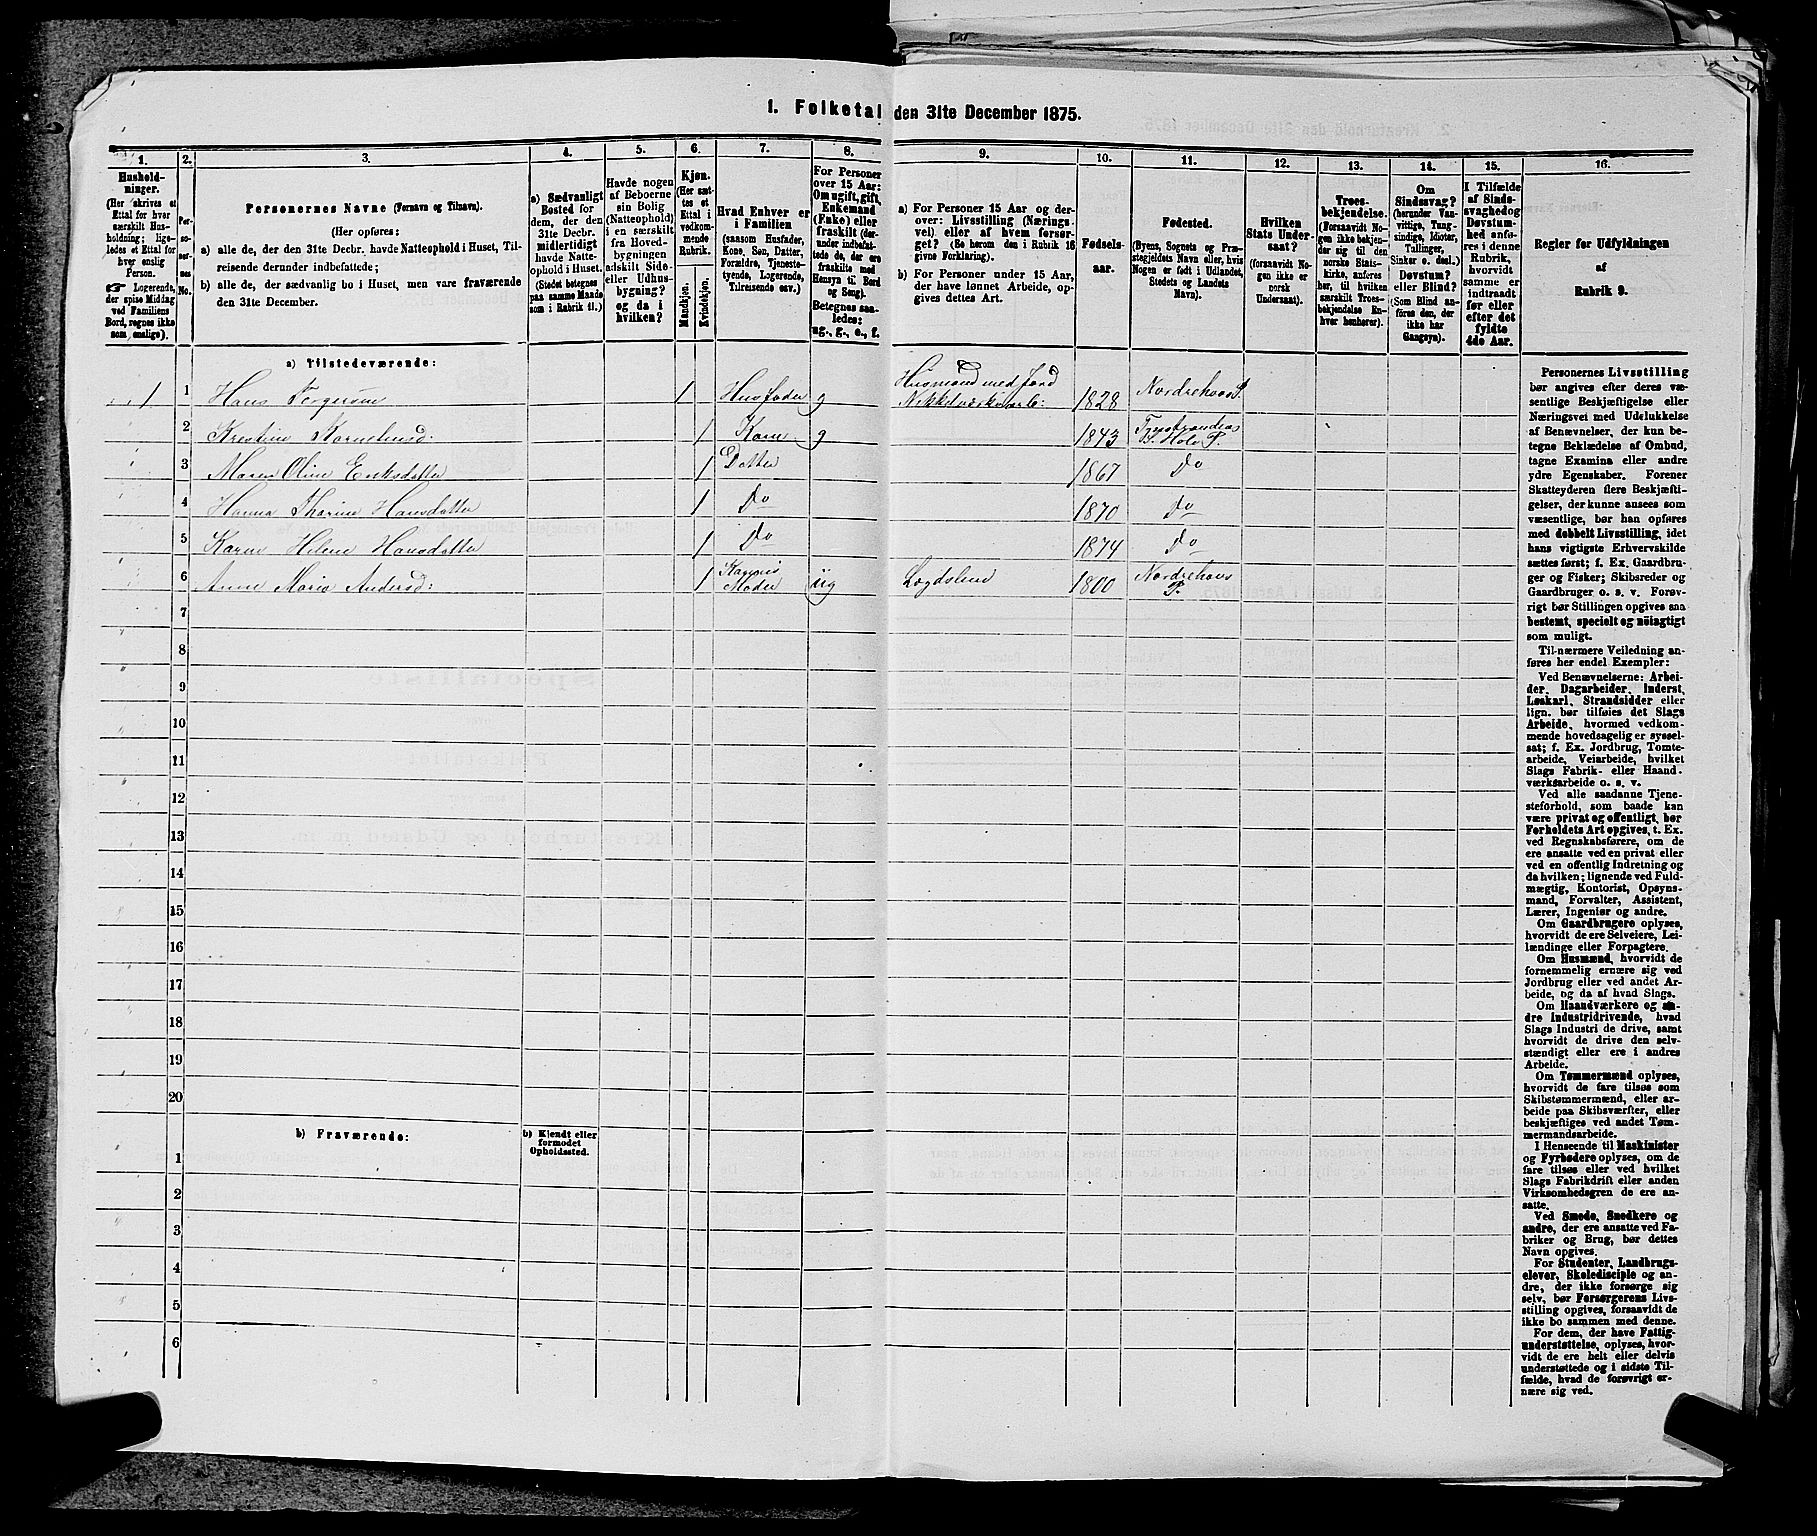 1. Folketal den 31te December 1875.
1. 2. 3. 4. 5. 6. 7. 8. 9. 10. 11. 12. 13. 14. 15. 16.
Hushold-
ninger.
(Her skrives et
Ettal for hver
særskilt Hus-
holdning; lige-
ledes et Ettal for
hver enslig
Person.
Logerende,
der spise Middag
ved Familiens
Bord, regnes ikke
som enslige).
Per-
so-
ner-
nes
No.
Personernes Navne (Fornavn og Tilnavn).
(Her opføres:
a) alle de, der den 31te Decbr. havde Natteophold i Huset, Til-
reisende derunder indbefattede;
b) alle de, der sædvanlig bo i Huset, men vare fraværende
den 31te December.
a) Sædvanligt
Bosted for
dem, der den
31te Decbr.
midlertidigt
havde Natte-
ophold i Huset.
(Stedet betegnes
paa samme Maade
som i Rubrik 11.)
Havde nogen
af Beboerne
sin Bolig
(Natteophold)
i en særskilt
fra Hoved-
bygningen
adskilt Side-
eller Udhus-
bygning?
og da i
hvilken?
Kjøn.
(Her sæt-
tes et
Ettal i
vedkom-
mende
Rubrik.
Mandkjøn.
Kvindekjøn.
Hvad Enhver er
i Familien
(saasom Husfader,
Kone, Søn, Datter,
Forældre, Tjeneste-
tyende, Logerende,
Tilreisende osv.)
For Personer
over 15 Aar:
Om ugift, gift,
Enkemand
(Enke) eller
fraskilt (der-
under indbefat-
tede de, der ere
fraskilte med
Hensyn til Bord
og Seng).
Betegnes saa-
ledes:
ug., g., e., f.
a) For Personer 15 Aar og der-
over: Livsstilling (Nærings-
vei) eller af hvem forsør-
get? (Se herom den i Rubrik 16
givne Forklaring).
b) For Personer under 15 Aar,
der have lønnet Arbeide, op-
gives dettes Art.
Fødsels-
aar.
Fødested.
(Byens, Sognets og Præ-
stegjeldets Navn eller, hvis
Nogen er født i Udlandet,
Stedets og Landets
Navn).
Hvilken
Stats Under-
saat?
(forsaavidt No-
gen ikke er
norsk
Undersaat).
Troes-
bekjendelse.
(Forsaavidt No-
gen ikke bekjen-
der sig til den
norske Stats-
kirke, anføres
her, til hvilken
særskilt Troes-
bekjendelse En-
hver henhører).
Om
Sindssvag?
(herunder Van-
vittige, Tung-
sindige, Idioter,
Tullinger,
Sinker o. desl.)
Døvstum?
eller Blind?
(Som Blind an-
føres den, der
ikke har
Gangsyn).
I Tilfælde
af Sinds-
svaghed og
Døvstum-
hed anfø-
res i denne
Rubrik,
hvorvidt
samme er
indtraadt
før eller
efter det
fyldte
4de Aar.
Regler for Udfyldningen
af
Rubrik 9.
a) Tilstedeværende:
1 1 Hans Torgersen 1 Husfader g Husmand med Jord 1828 Nordrehovs P.
2 Kristine Kornelusd: 1 Kone g 1843 Hole P.
3 Maren Oline Eriksdatter 1 Datter 1867 Do
4 Hanna Thorine Hansdatter 1 Do 1870 Do
5 Karen Helene Hansdatter 1 Do 1874 Do
6 Anne Maria Andersd: 1 Konens Moder ug Lægdslem 1800 Nordrehovs P.
7
8
9
10
11
12
13
14
15
16
17
18
19
20
b) Fraværende:
b) Kjendt eller
formodet
Opholdssted.
1
2
3
4
5
6
Personernes Livsstilling
bør angives efter deres væ-
sentlige Beskjæftigelse eller
Næringsvei med Udelukkelse
af Benævnelser, der kun be-
tegne Beklædelse af Ombud,
tagne Examina eller andre
ydre Egenskaber. Forener
Skatteyderen flere Beskjæfti-
gelser, der kunne ansees som
væsentlige, bør han opføres
med dobbelt Livsstilling, idet
hans vigtigste Erhvervskilde
sættes først; f. Ex. Gaardbru-
ger og Fisker; Skibsreder og
Gaardbruger o. s. v. Forøv-
rigt bør Stillingen opgives saa
bestemt, specielt og nøiagtigt
som muligt.
Til nærmere Veiledning an-
føres her endel Exempler:
Ved Benævnelserne: Arbei-
der, Dagarbeider, Inderst,
Løskarl, Strandsidder eller
lign. bør tilføies det Slags
Arbeide, hvormed vedkom-
mende hovedsagelig er syssel-
sat; f. Ex. Jordbrug, Tomte-
arbeide, Veiarbeide, hvilket
Slags Fabrik- eller Haand-
værksarbeide o. s. v.
Ved alle saadanne Tjene-
steforhold, som baade kan
være privat og offentligt, bør
Forholdets Art opgives, t. Ex.
ved Regnskabsførere, om de
ere ansatte ved en privat eller
ved en offentlig Indretning og
da hvilken; lignende ved Fuld-
mægtig, Kontorist, Opsyns-
mand, Forvalter, Assistent,
Lærer, Ingeniør og andre.
Om Gaardbrugere oplyses,
hvorvidt de ere Selveiere, Lei-
lændinge eller Forpagtere.
Om Husmænd, hvorvidt de
fornemmelig ernære sig ved
Jordbrug eller ved andet Ar-
beide, og da af hvad Slags.
Om Haandværkere og an-
dre Industridrivende, hvad
Slags Industri de drive, samt
hvorvidt de drive den selv-
stændigt eller ere i andres
Arbeide.
Om Tømmermænd oplyses,
hvorvidt de fare tilsøs som
Skibstømmermænd, eller ar-
beide paa Skibsværfter, eller
beskjæftiges ved andet Tøm-
mermandsarbeide.
I Henseende til Maskinister
og Fyrbødere oplyses, om de
fare tilsøs eller ved hvilket
Slags Fabrikdrift eller anden
Virksomhedsgren de ere an-
satte.
Ved Smede, Snedkere og
andre, der ere ansatte ved Fa-
briker og Brug, bør dettes
Navn opgives.
For Studenter, Landbrugs-
elever, Skoledisciple og an-
dre, der ikke forsørge sig
selv, bør Forsørgerens Livs-
stilling opgives, forsaavidt de
ikke bo sammen med denne.
For dem, der have Fattig-
understøttelse, oplyses, hvor-
vidt de ere helt eller delvis
understøttede og i sidste Til-
fælde, hvad de forøvrigt er-
nære sig ved.